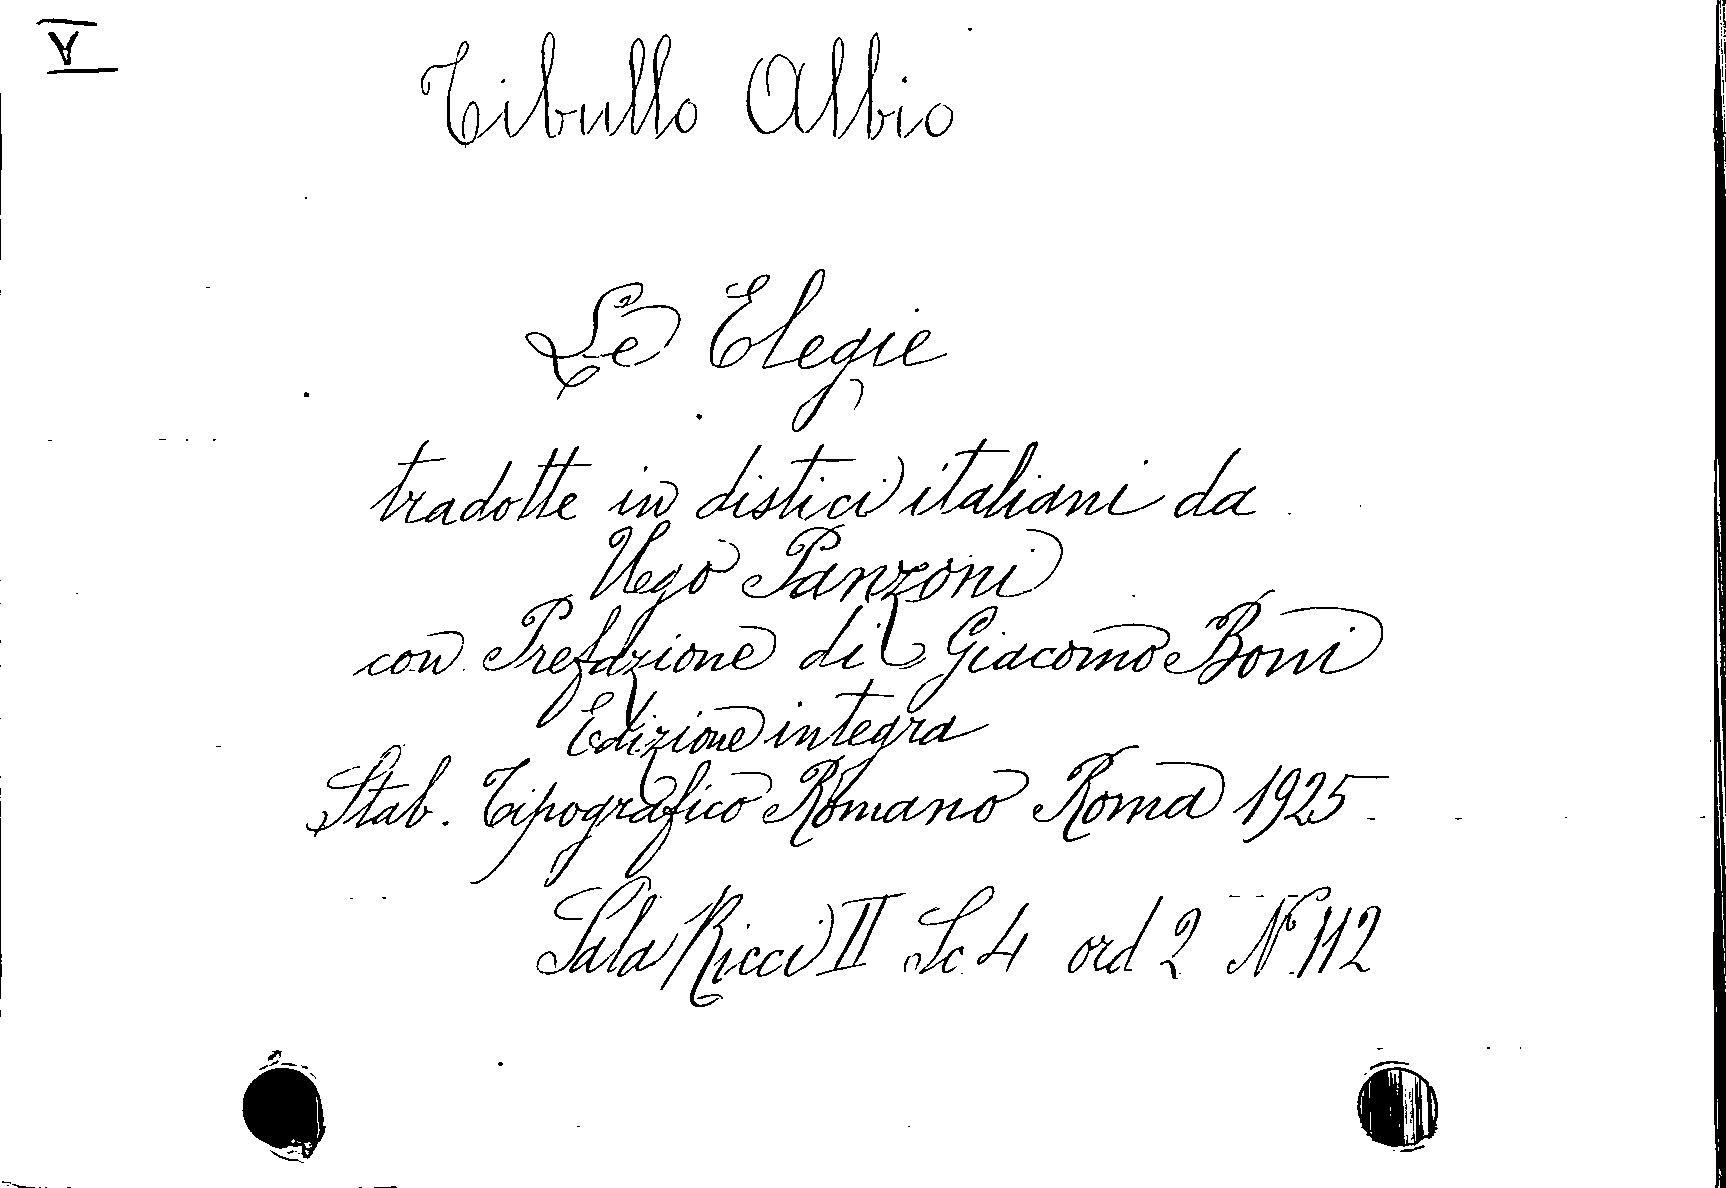 V
Tibullo Albio
Le Elegie
tradotte in distici italiani da
Ugo Panzoni
con Prefazione di Giacomo Boni
Edizione integra
Stab. Tipografico Romano Roma 1925
Sala Ricci II Sc 4 ord 2 N. 112